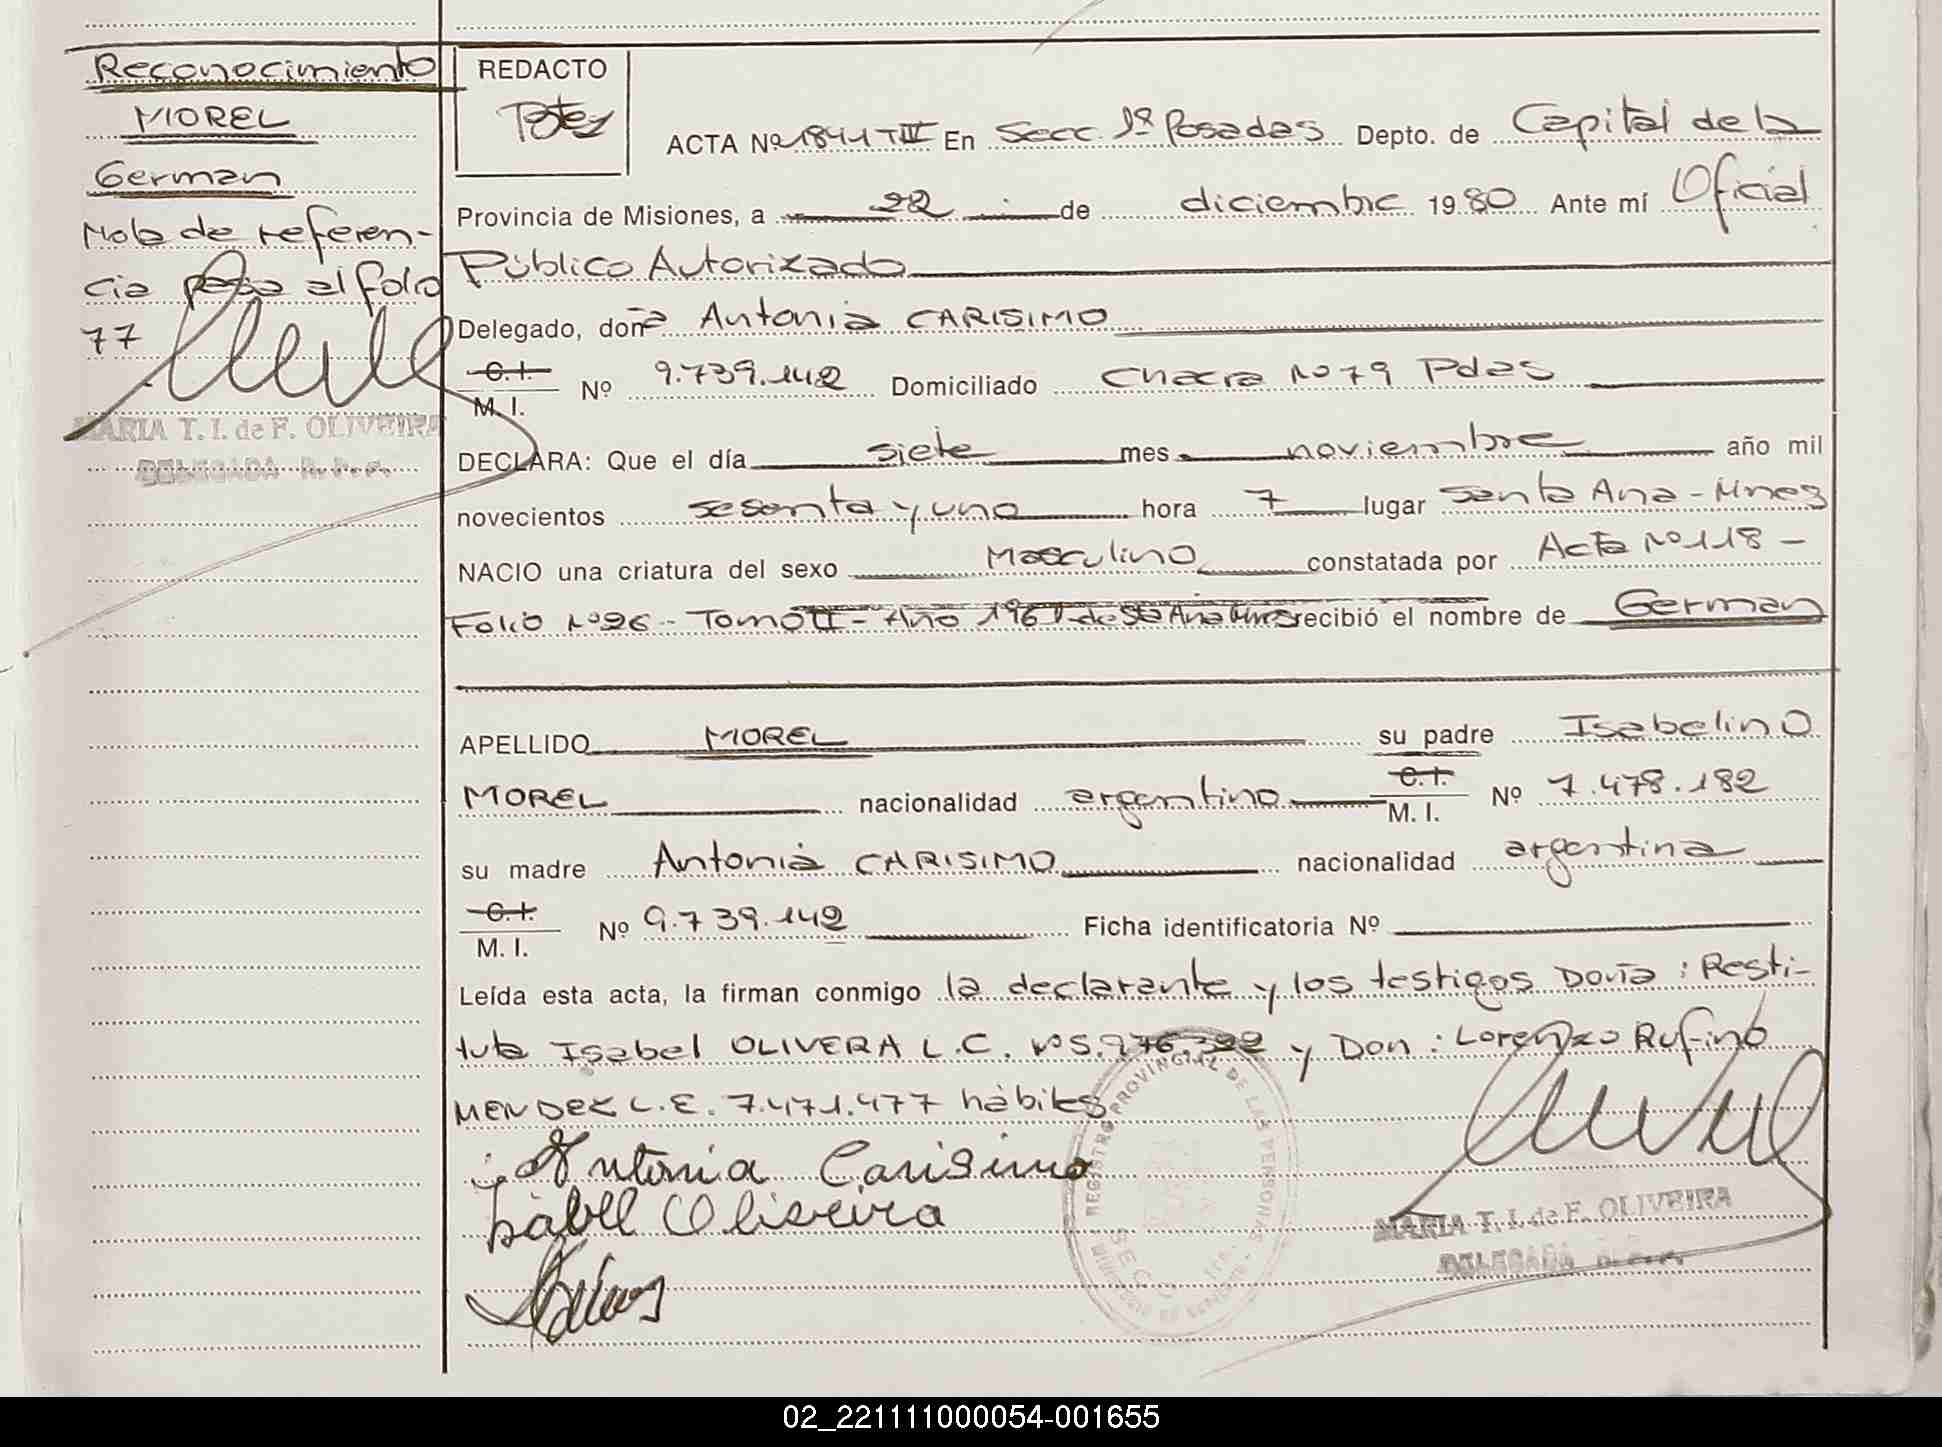 Reconocimiento
MOREL
German
Nota de referen-
cia pasa al folio
77
MARIA T. I. de F. OLIVEIRA
DELEGADA R. P. P.
REDACTO
ACTA Nº 1841 T III En Secc. 1ª Posadas Depto. de Capital de la
Provincia de Misiones, a 22 de diciembre 1980 Ante mí Oficial
Público Autorizado
Delegado, doña Antonia CARISIMO
C. I.
M. I. Nº 9.739.142 Domiciliado Chacra Nº 79 Pdas
DECLARA: Que el día siete mes noviembre año mil
novecientos sesenta y uno hora 7 lugar Santa Ana - Mnes
NACIO una criatura del sexo Masculino constatada por Acta Nº 118 -
Folio Nº 26 - Tomo II - Año 1961 de Sta Ana Mnes recibió el nombre de German
APELLIDO MOREL su padre Isabelino
MOREL nacionalidad argentino C. I. M. I. Nº 7.478.182
su madre Antonia CARISIMO nacionalidad argentina
C. I.
M. I. Nº 9.739.142 Ficha identificatoria Nº
Leída esta acta, la firman conmigo la declarante y los testigos Doña: Resti-
tuta Isabel OLIVERA L.C. Nº 5.276.322 y Don: Lorenzo Rufino
MENDEZ L.E. 7.471.477 hábiles
Antonia Carisimo
Isabel Oliveira
REGISTRO PROVINCIAL DE LAS PERSONAS
MARIA T. I. de F. OLIVEIRA
DELEGADA R. P. P.
02_221111000054-001655